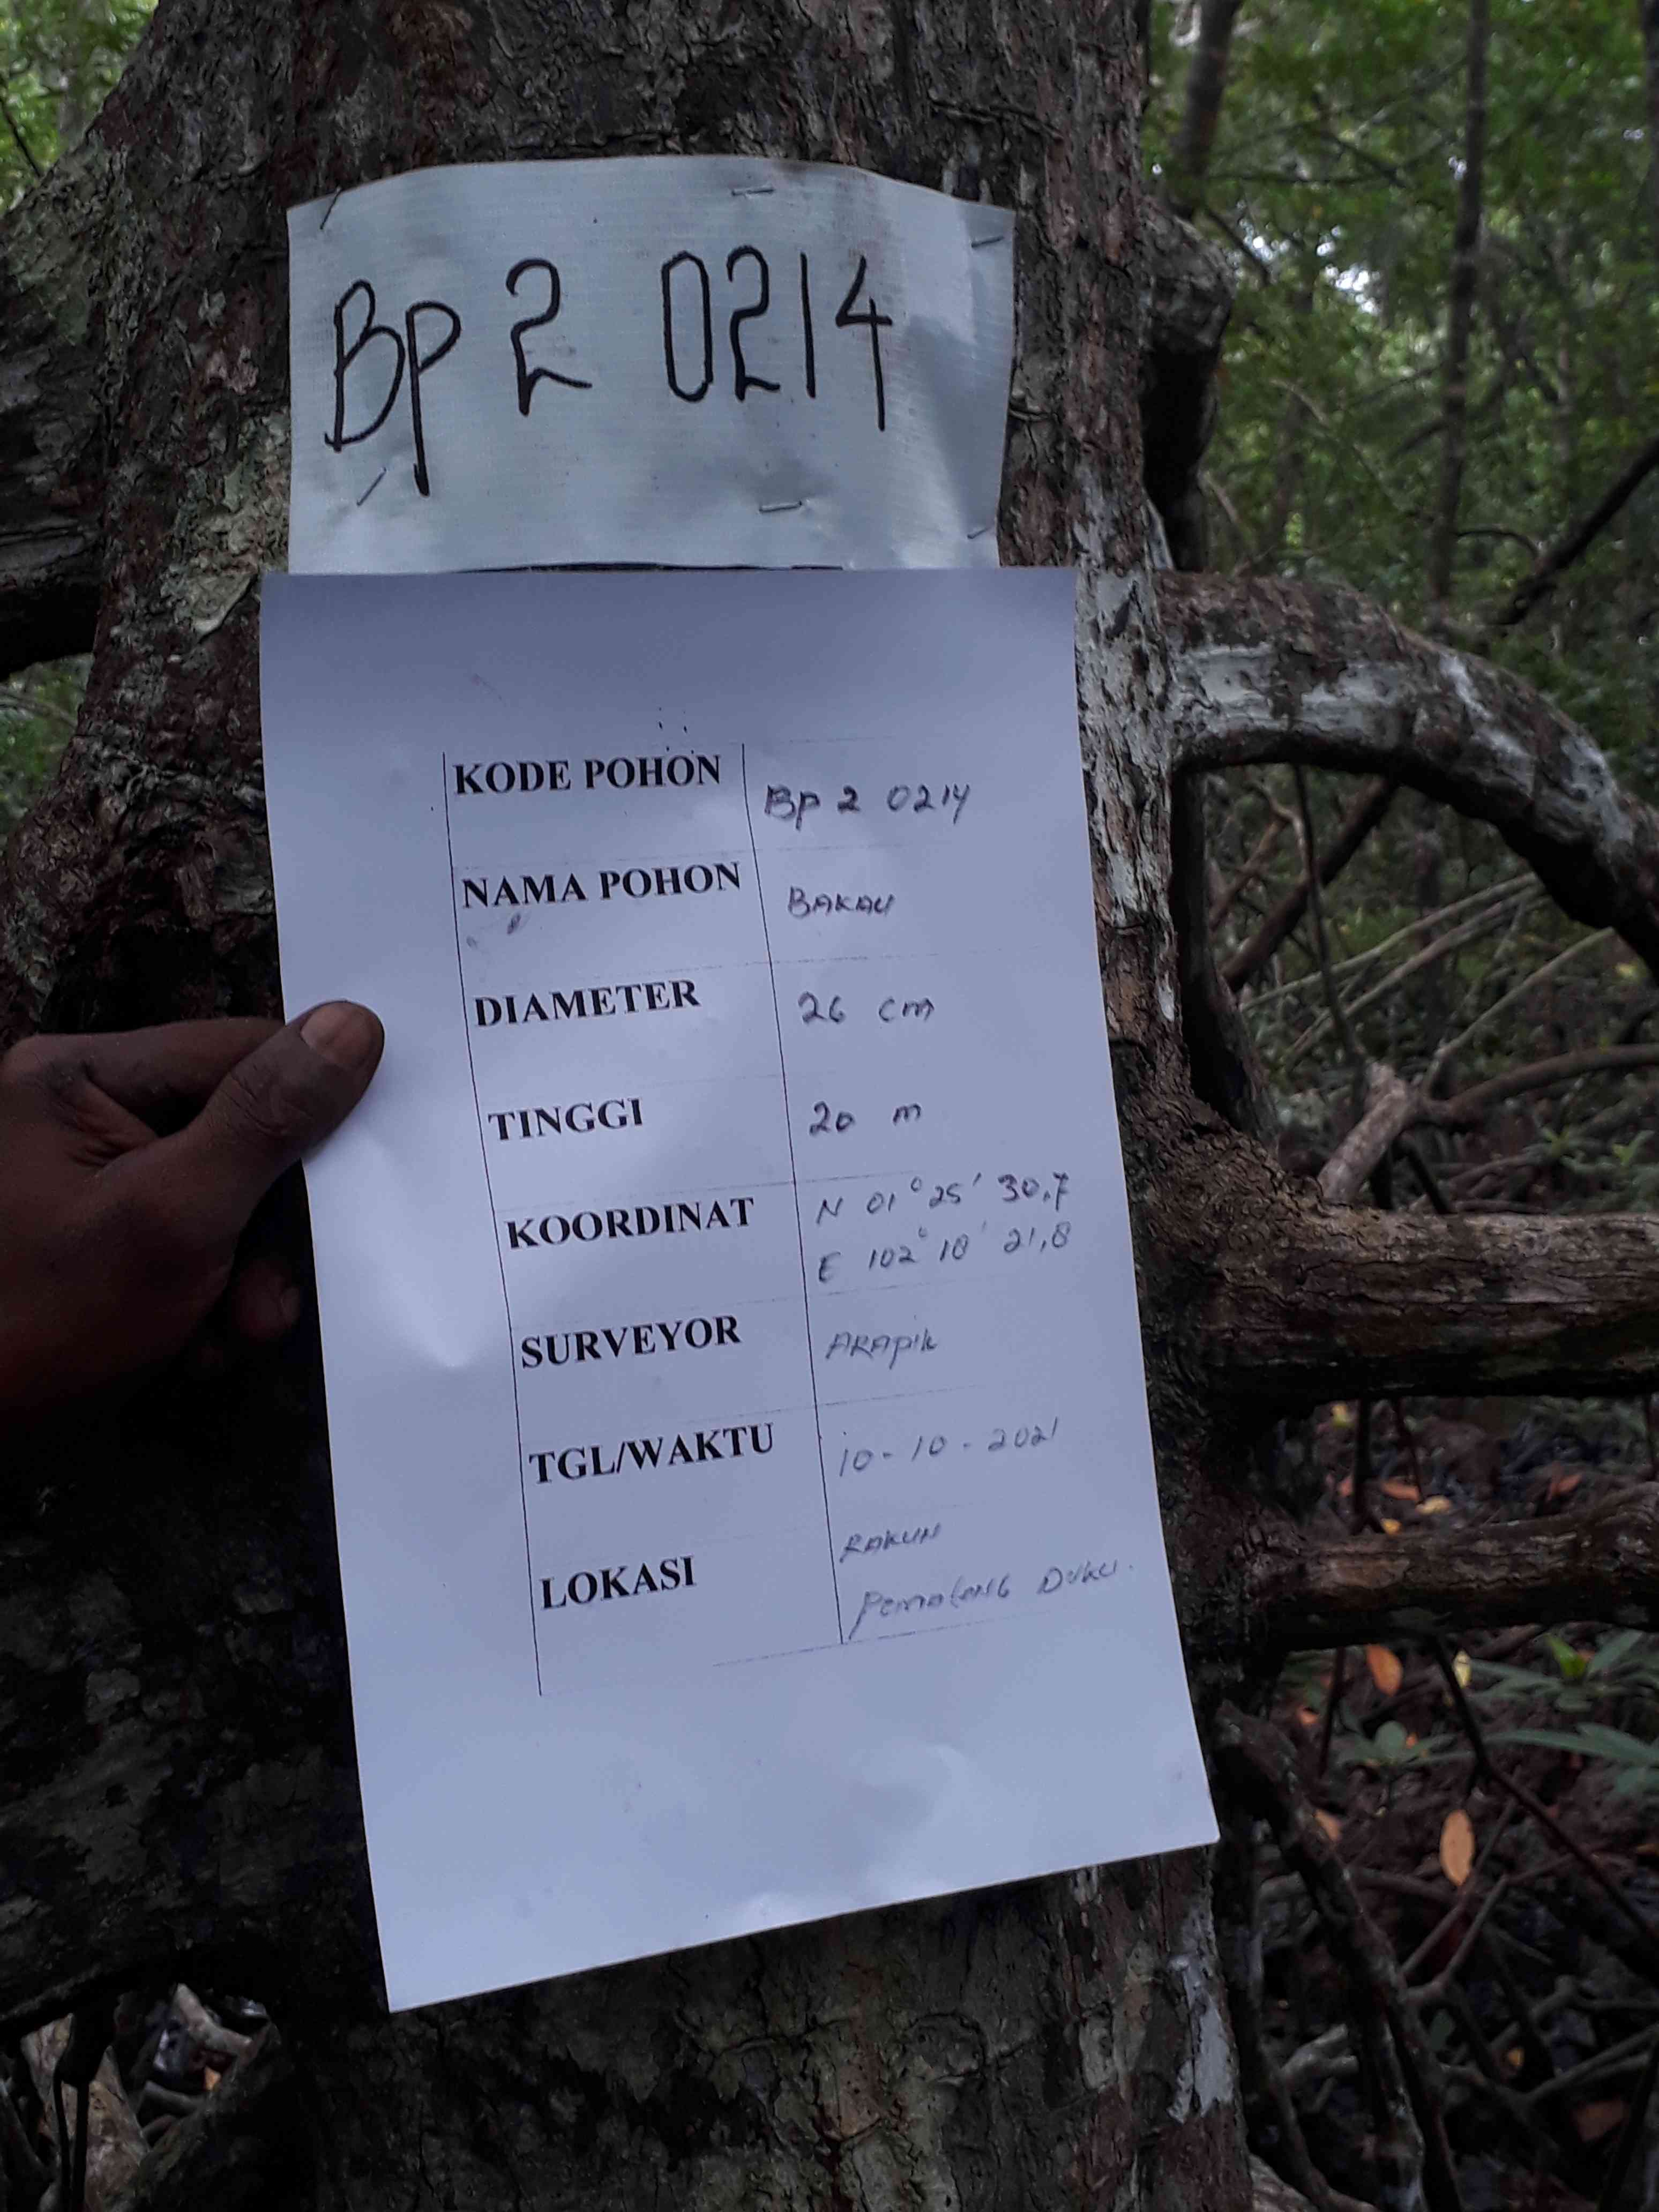 Bp 2 0214
KODE POHON Bp 2 0214
NAMA POHON BAKAU
DIAMETER 26 cm
TINGGI 20 m
KOORDINAT N 01° 25' 30,7
E 102° 10' 21,8
SURVEYOR ARAPIK
TGL/WAKTU 10-10-2021
LOKASI RAKUN
Pematang Duku.